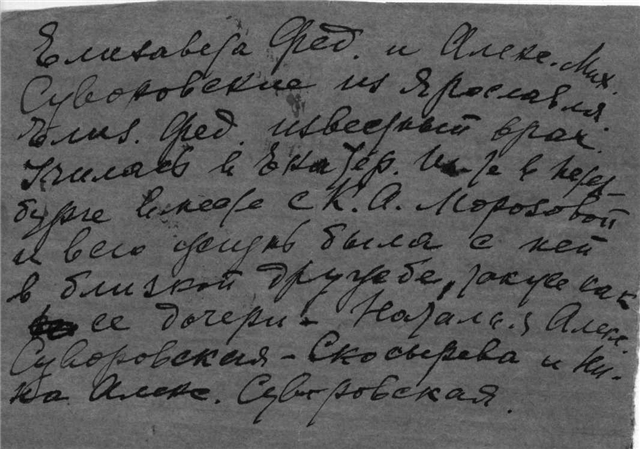 Елизавета Фед. и Алекс. Мих.
Суворовские из Ярославля.
Елиз. Фед. известный врач.
Училась в Екатер. Ин-те в Петер-
бурге вместе с К. А. Морозовой
и всю жизнь была с ней
в близкой дружбе, также как
ее дочери - Наталия Алекс.
Суворовская-Скосырева и Ни-
на Алекс. Суворовская.